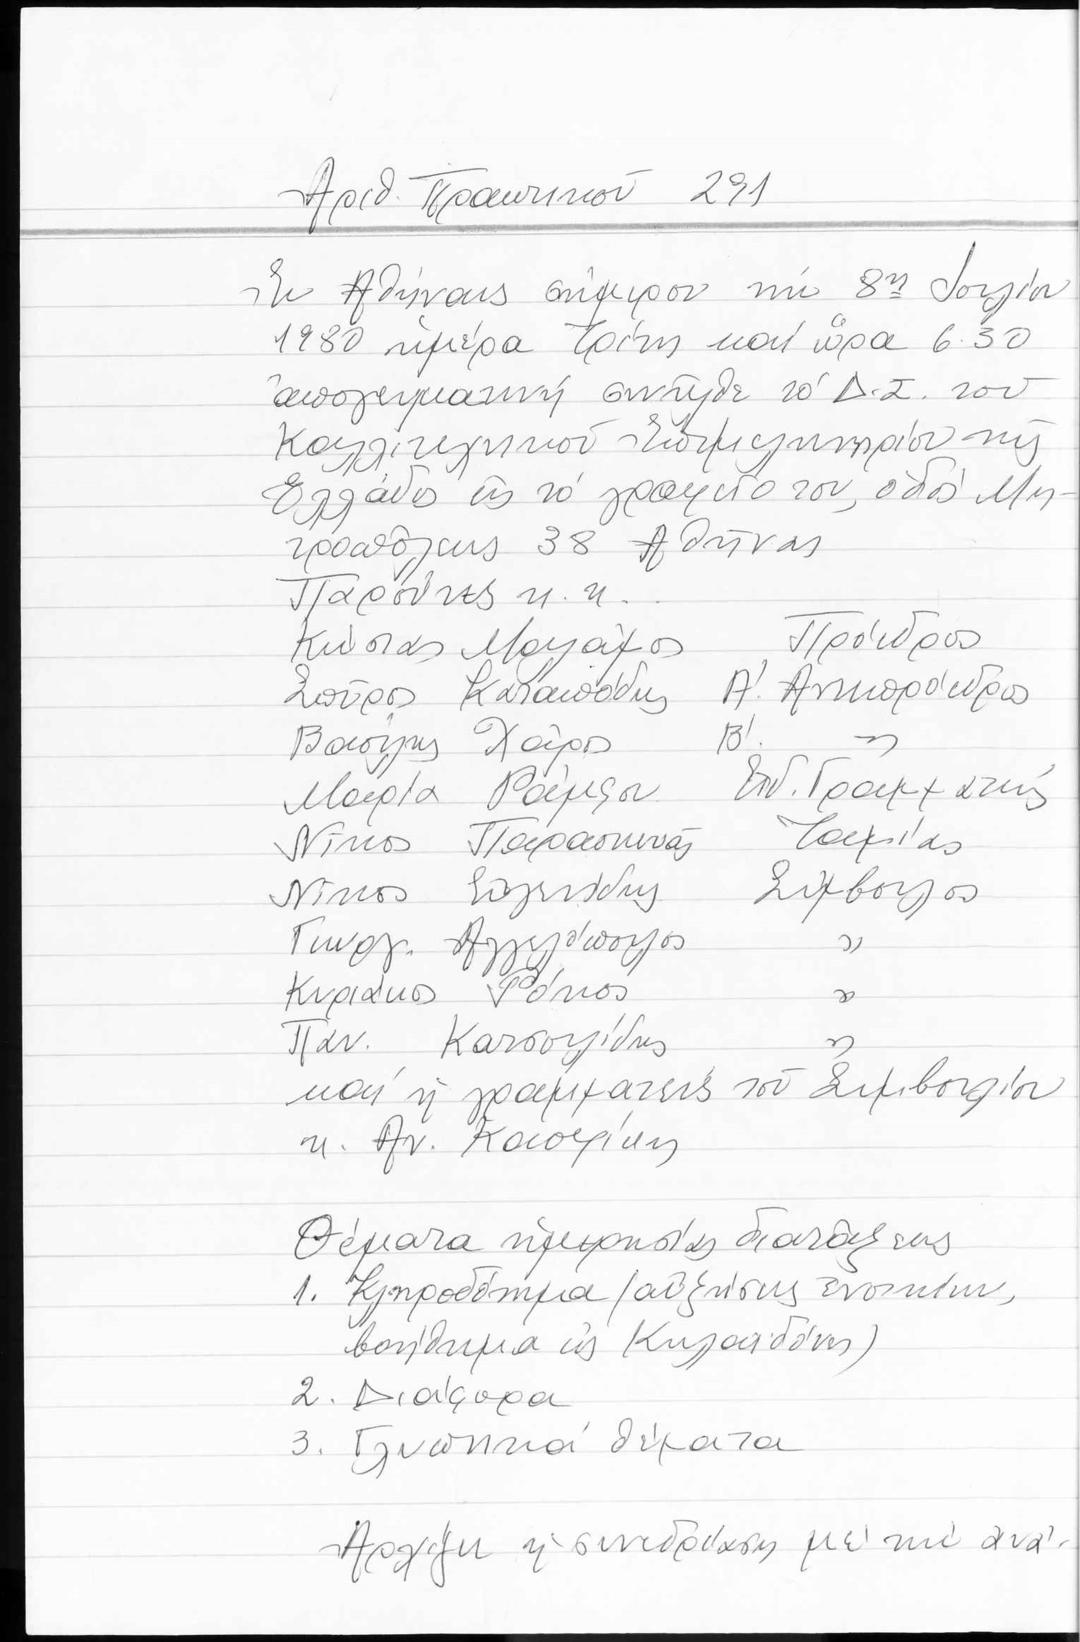 Ἀριθ. Πρακτικοῦ 291
Ἐν Ἀθήναις σήμερον τήν 8η Ἰουλίου
1980 ἡμέρα Τρίτη καί ὥρα 6.30
ἀπογευματινή συνῆλθε τό Δ.Σ. τοῦ
Καλλιτεχνικοῦ Ἐπιμελητηρίου τῆς
Ἑλλάδος εἰς τό γραφεῖο του, ὁδός Μη-
τροπόλεως 38 Ἀθήνας
Παρόντες κ.κ..
Κώστας Μαλάμος Πρόεδρος
Σπῦρος Καταπόδης Α΄. Ἀντιπρόεδρος
Βασίλης Χάρος Β΄. "
Μαρία Ράμφου Εἰδ. Γραμματεύς
Νῖκος Παρασκευᾶς Ταμίας
Νῖκος Σύμβουλος
Γεωργ. Ἀγγελόπουλος "
Κυριάκος Ρόκος "
Παν. Κατσουλίδης "
καί ἡ γραμματεύς τοῦ Συμβουλίου
κ. Αν. Κασιμίκη
Θέματα ἡμερησίας διατάξεως
1. Κληροδότημα (αὐξήσεις ἐνοικίων,
βοήθημα εἰς Κηλαϊδόνη)
2. Διάφορα
3. Γλυπτικά θέματα
Ἀρχίζει ἡ συνεδρίαση μέ τήν ἀνά-